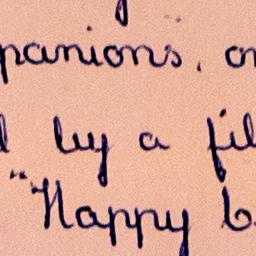 panions, on
by a fil
"Happy b